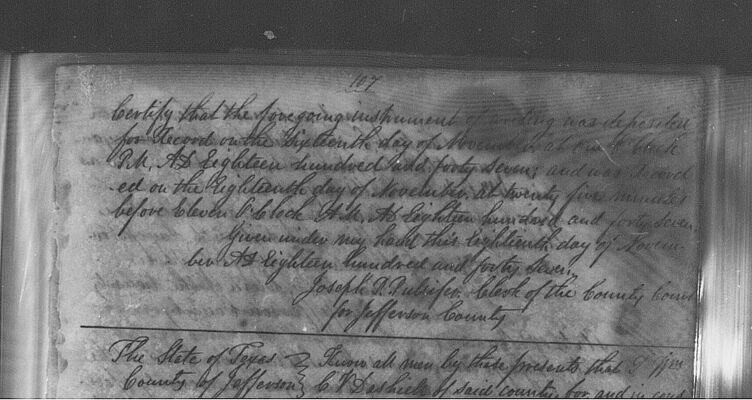 107
Certify that the foregoing instrument of writing was deposited
for Record on the Sixteenth day of November, at One O Clock
P.M, AD Eighteen hundred and forty seven; and was Record
ed on the Eighteenth day of November, at twenty five minutes
before Eleven O Clock A.M, AD Eighteen hundred and forty seven,
Given under my hand this Eighteenth day of Novem-
ber AD Eighteen hundred and forty seven,
Joseph P. Pulsifer, Clerk of the County Court
for Jefferson County
The State of Texas } Know all men by these presents, that I
County of Jefferson } C V Dashiell of said county, for and in cons